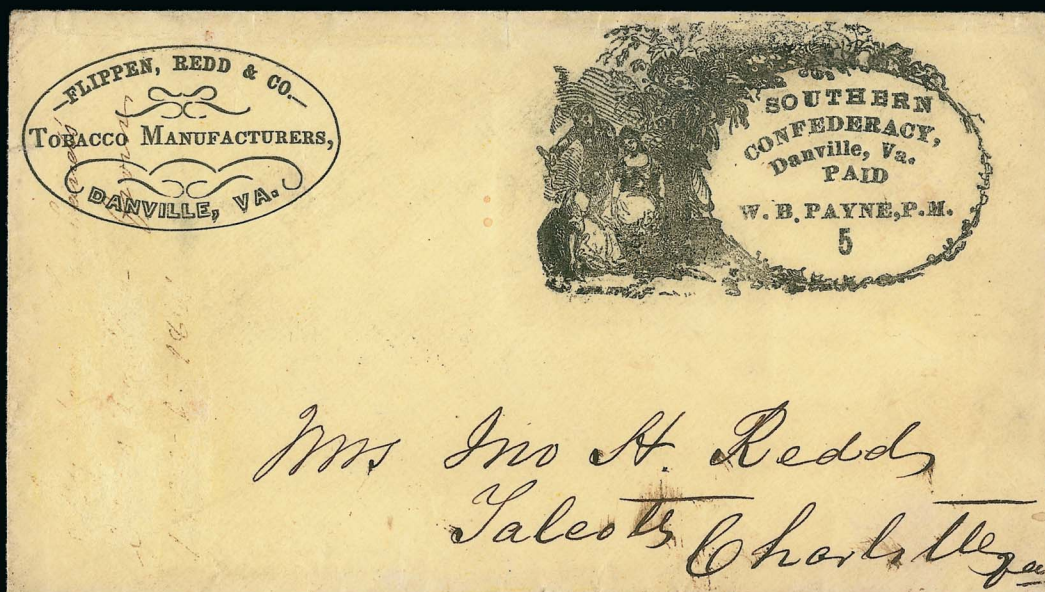 —FLIPPEN, REDD & CO.—
TOBACCO MANUFACTURERS,
DANVILLE, VA.
SOUTHERN
CONFEDERACY,
Danville, Va.
PAID
W. B. PAYNE, P.M.
5
Mrs Jno H. Redd
Talcotts
Charlotte